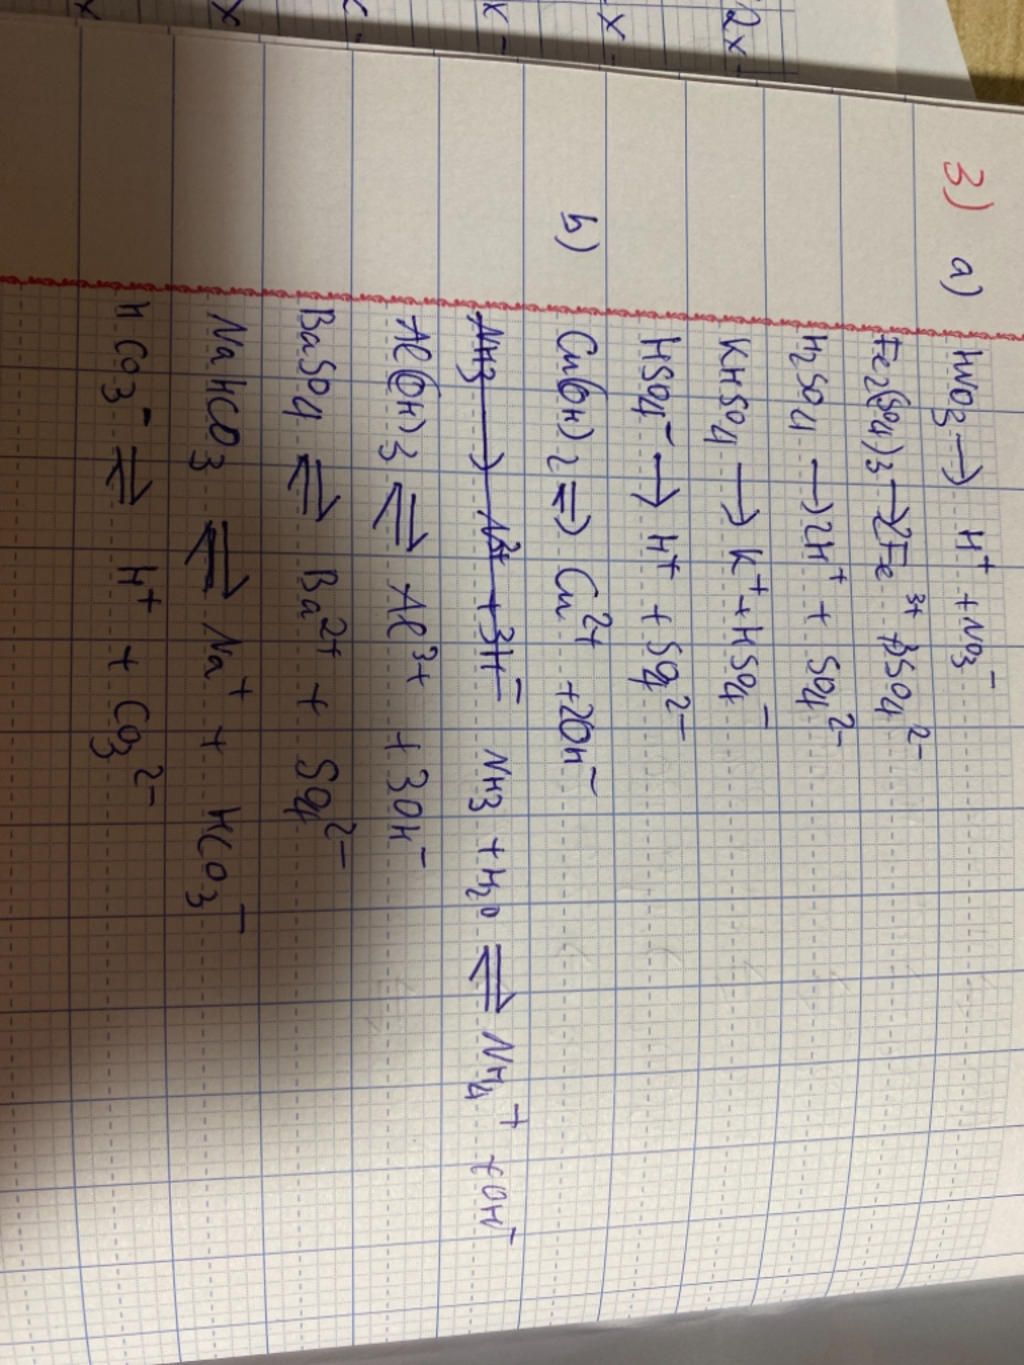 2x
x -
x -
x -
x
x
3) a) HNO3 → H+ + NO3-
Fe2(SO4)3 → 2Fe3+ + 3SO4 2-
H2SO4 → 2H+ + SO4 2-
KHSO4 → K+ + HSO4-
HSO4- → H+ + SO4 2-
b) Cu(OH)2 ⇌ Cu2+ + 2OH-
NH3 + H2O ⇌ NH4+ + OH-
Al(OH)3 ⇌ Al3+ + 3OH-
BaSO4 ⇌ Ba2+ + SO4 2-
NaHCO3 ⇌ Na+ + HCO3-
HCO3- ⇌ H+ + CO3 2-